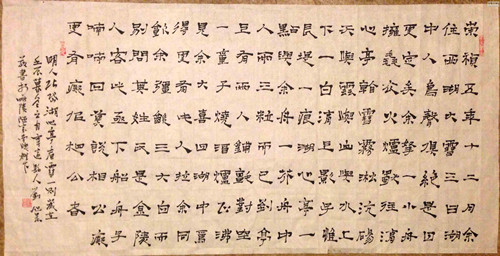 崇禎五年十二月余
住西湖大雪三日湖
中人鳥聲俱絕是日
更定矣余拏一小舟
擁毳衣爐火獨往湖
心亭看雪霧凇沆碭
天與雲與山與水上
下一白湖上影子惟
長堤一痕湖心亭一
點與余舟一芥舟中
人兩三粒而已到亭
上有兩人鋪氈對坐
一童子燒酒爐正沸
見余大喜曰湖中焉
得更有此人拉余同
飲余強飲三大白而
別問其姓氏是金陵
人客此及下船舟子
喃喃曰莫說相公癡
更有癡似相公者
明人張岱湖心亭看雪一則歲在
壬辰